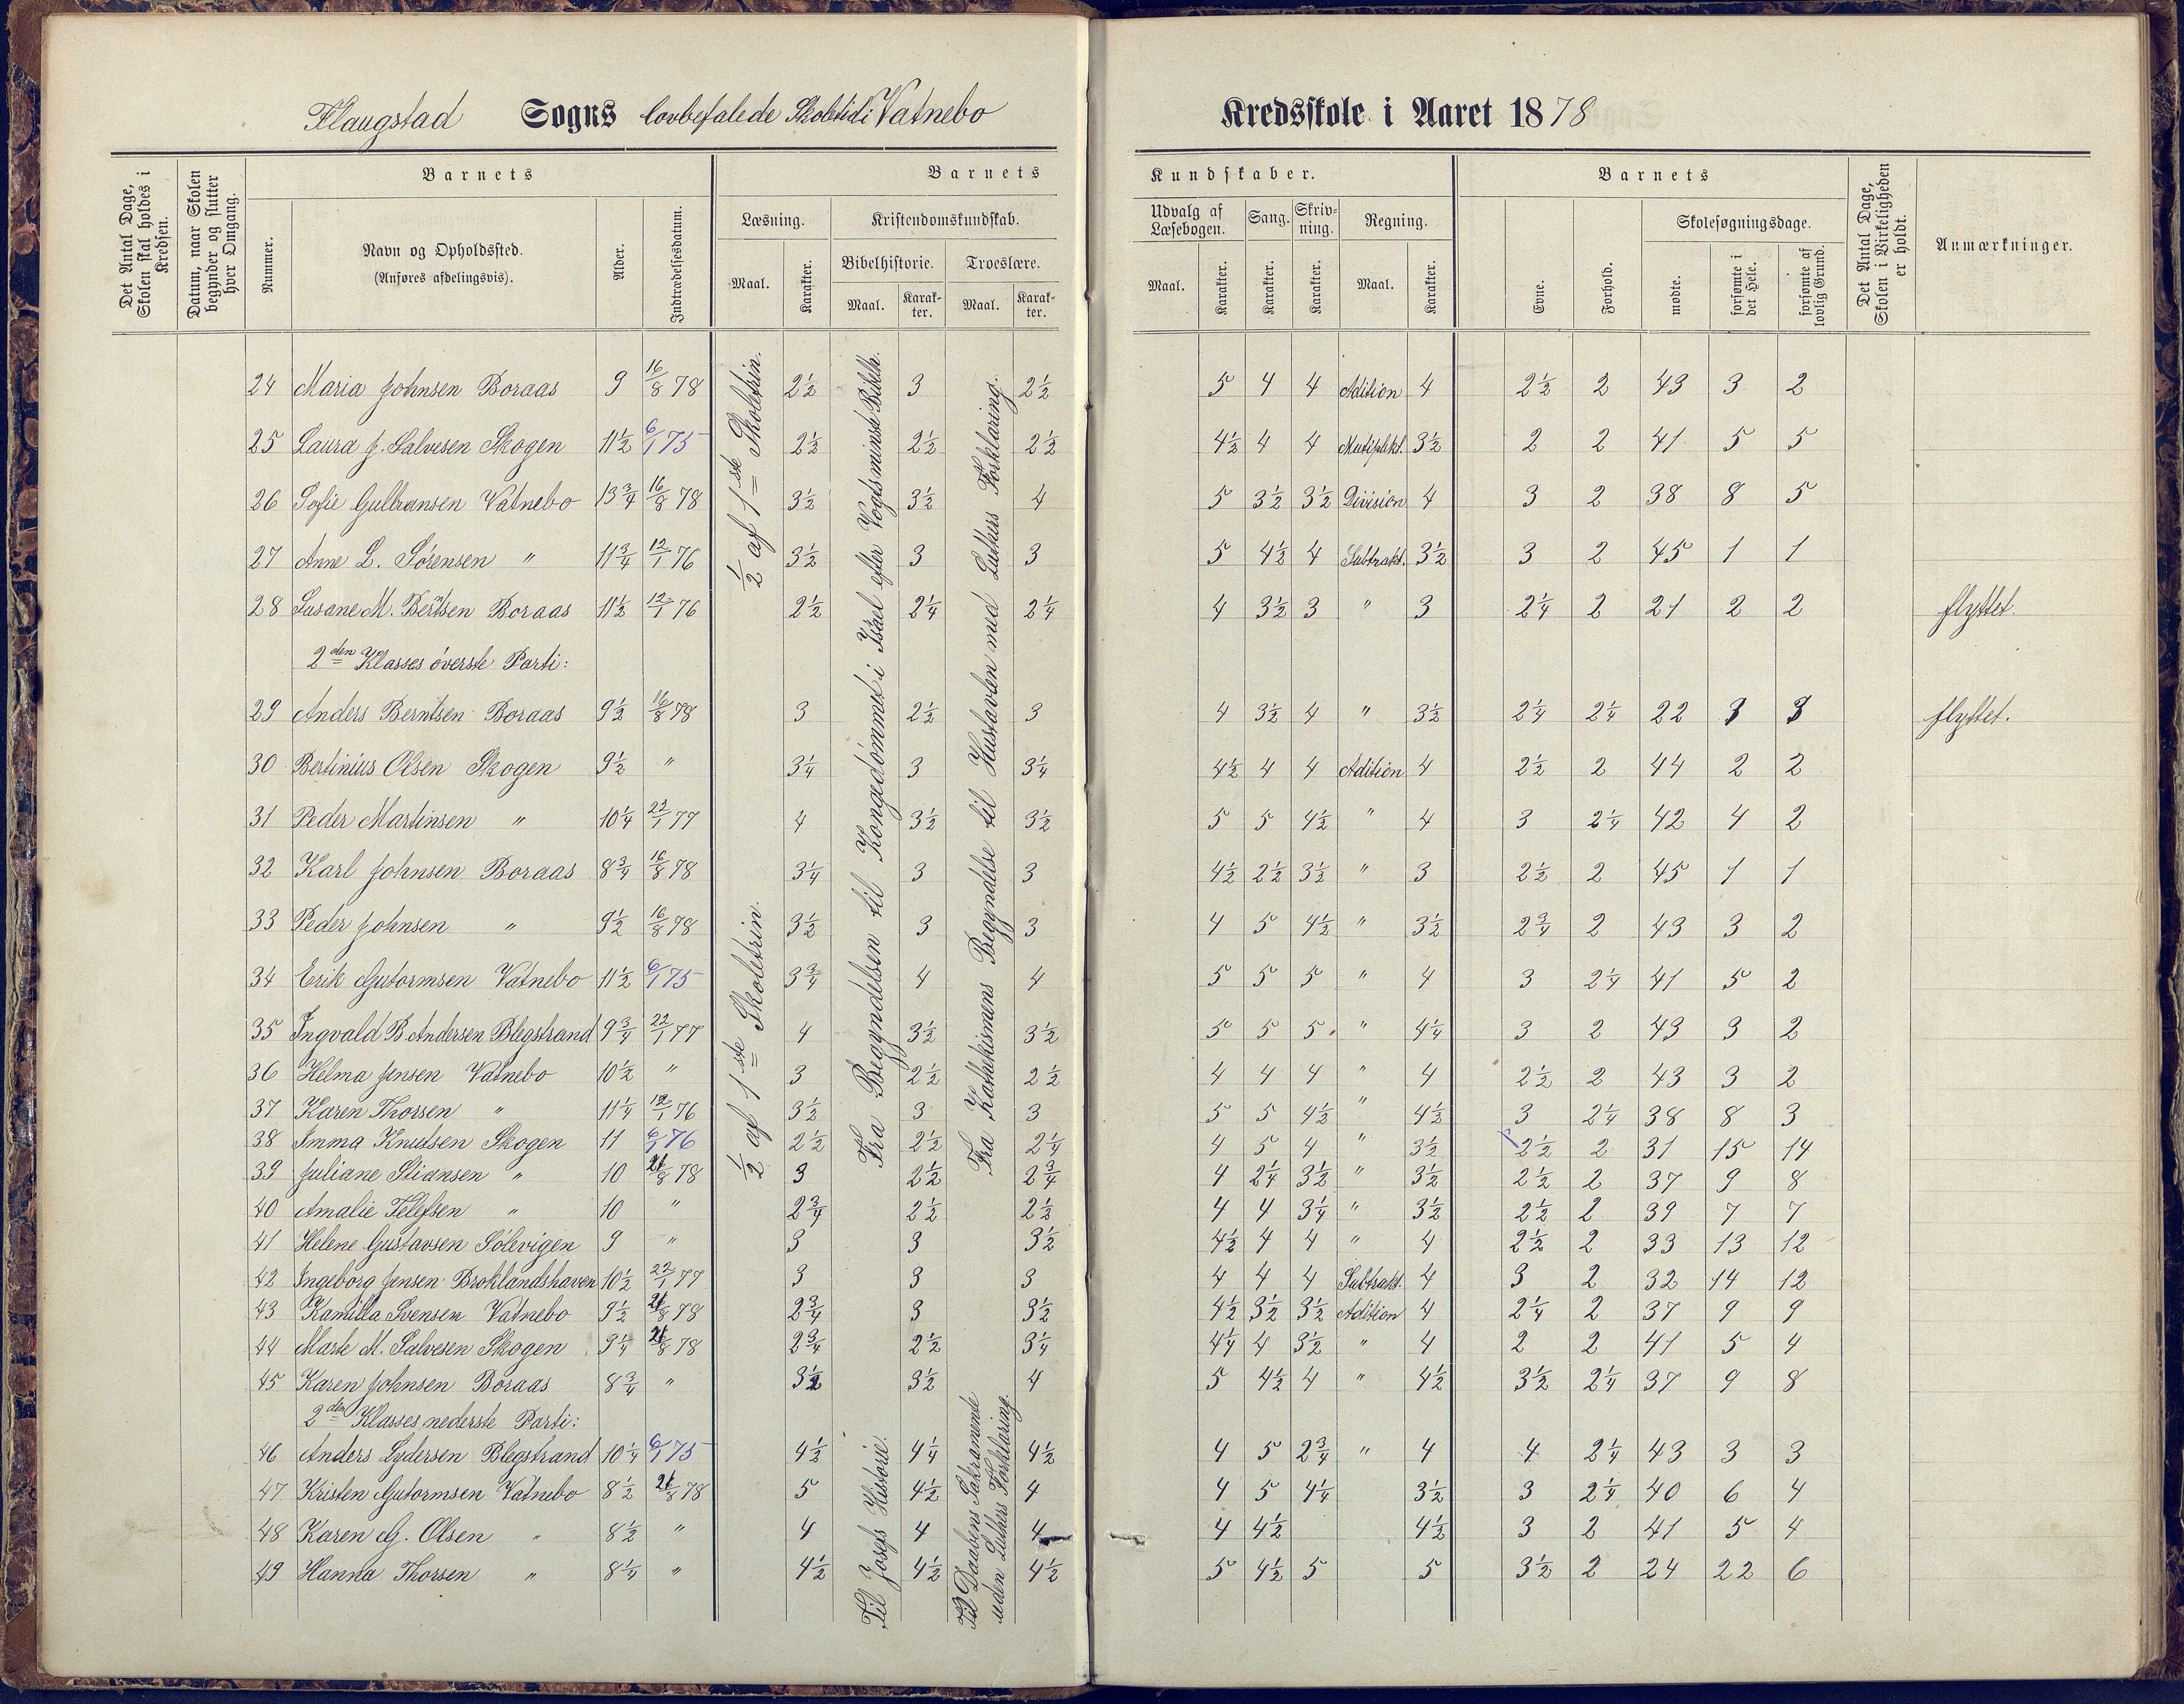 Flaugstad Sogns lovbefalede Skoletid i Vatnebo Kredsskole i Aaret 1878
Det Antal Dage, Skolen skal holdes i Kredsen.
Datum, naar Skolen begynder og slutter hver Omgang.
Barnets
Nummer.
Navn og Opholdssted.
(Anføres afdelingsvis).
Alder.
Indtrædelsesdatum.
Barnets Kundskaber.
Læsning.
Maal. Karakter.
Kristendomskundskab.
Bibelhistorie. Troeslære.
Maal. Karakter. Maal. Karakter.
Udvalg af Læsebogen. Sang. Skrivning. Regning.
Maal. Karakter. Karakter. Karakter. Maal. Karakter.
Barnets
Evne. Forhold.
Skolesøgningsdage.
mødte. forsømte i det Hele. forsømte af lovlig Grund.
Det Antal Dage, Skolen i Virkeligheden er holdt.
Anmærkninger.
½ af 1ste Skoletrin.
Fra Begyndelsen til Kongedømmet i Israel efter Vogts mindste Bibelh.
Fra Kathekismens Begyndelse til Hustavlen med Luthers Forklaring.
24 Maria Johnsen Boraas 9 16/8 78 2½ 3 2½ 5 4 4 Adition 4 2½ 2 43 3 2
25 Laura J. Salvesen Skogen 11½ 6/1 75 2½ 2½ 2½ 4½ 4 4 Mutiplikt. 3½ 2 2 41 5 5
26 Sofie Gulbransen Vatnebo 13¾ 16/8 78 3½ 3½ 4 5 3½ 3½ Division 4 3 2 38 8 5
27 Anne L. Sørensen " 11¾ 12/1 76 3½ 3 3 5 4½ 4 Subtrakt. 3½ 3 2 45 1 1
28 Susane M. Bertsen Boraas 11½ 12/1 76 2½ 2¼ 2¼ 4 3½ 3 " 3 2¼ 2 21 2 2 flyttet.
2den Klasses øverste Parti:
29 Anders Berntsen Boraas 9½ 16/8 78 3 2½ 3 4 3½ 4 " 3½ 2¼ 2¼ 22 3 3 flyttet.
30 Bertinius Olsen Skogen 9½ " 3¼ 3 3¼ 4½ 4 4 Adition 4 2½ 2 44 2 2
31 Peder Martinsen " 10¼ 22/1 77 4 3½ 3½ 5 5 4½ " 4 3 2¼ 42 4 2
32 Karl Johnsen Boraas 8¾ 16/8 78 3¼ 3 3 4½ 2½ 3½ " 3 2½ 2 45 1 1
33 Peder Johnsen " 9½ 16/8 78 3½ 3 3 4 5 4½ " 3½ 2¾ 2 43 3 2
34 Erik Gutormsen Vatnebo 11½ 6/1 75 3¾ 4 4 5 5 5 " 4 3 2¼ 41 5 2
½ af 1ste Skoletrin.
35 Ingvald B. Andersen Blegstrand 9¾ 22/1 77 4 3½ 3½ 5 5 5 " 4¼ 3 2 43 3 2
36 Helma Jensen Vatnebo 10½ " 3 2½ 2½ 4 4 4 " 4 2½ 2 43 3 2
37 Karen Thorsen " 11¼ 12/1 76 3½ 3 3 5 5 4½ " 4½ 3 2¼ 38 8 3
38 Imma Knutsen Skogen 11 6/1 76 2½ 2½ 2¼ 4 5 4 " 3½ 2½ 2 31 15 14
39 Juliane Stiansen " 10 21/8 78 3 2½ 2¾ 4 2¼ 3½ " 3½ 2½ 2 37 9 8
40 Amalie Telefsen " 10 " 2¾ 2½ 2½ 4 4 3¼ " 3½ 2½ 2 39 7 7
41 Helene Gustavsen Sølevigen 9 " 3 3 3½ 4½ 4 4 " 4 2½ 2 33 13 12
42 Ingeborg Jensen Broklandshaven 10½ 22/1 77 3 3 3 4 4 4 Subtrakt. 4 3 2 32 14 12
43 Kamilla Svensen Vatnebo 9½ 21/8 78 2¾ 3 3½ 4½ 3½ 3½ Adition 4 2¼ 2 37 9 9
44 Marte M. Salvesen Skogen 9¼ 21/8 78 2¾ 2½ 3¼ 4¼ 4 3½ " 4 2 2 41 5 4
45 Karen Johnsen Boraas 8¾ " 3½ 3½ 4 5 4½ 4 " 4½ 3½ 2¼ 37 9 8
2den Klasses nederste Parti:
Til Josefs Historie.
Til Daabens Sakramente uden Luthers Forklaring.
46 Anders Lydersen Blegstrand 10¼ 6/1 75 4½ 4¼ 4½ 4 5 2¾ " 4 4 2¼ 43 3 3
47 Kristen Gutormsen Vatnebo 8½ 21/8 78 5 4½ 4 4 5 4¼ 3½ 3 2¼ 40 6 4
48 Karen G. Olsen " 8½ " 4 4 4 4 4½ 4½ 3 2 41 5 4
49 Hanna Thorsen " 8¼ " 4½ 4½ 4½ 5 4½ 5 5 3½ 2 24 22 6